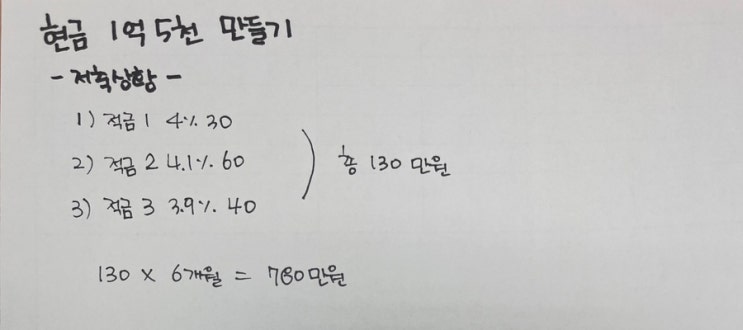 현금 1억 5천 만들기
- 저축상황 -
1) 적금 1 4% 30
2) 적금 2 4.1% 60
총 130 만원
3) 적금 3 3.9% 40
130 × 6개월 = 780만원